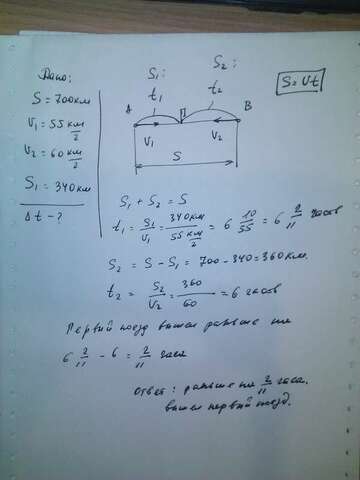 Дано:
S = 700 км
V₁ = 55 км/ч
V₂ = 60 км/ч
S₁ = 340 км
Δt - ?
S₁: S₂:
t₁ t₂
A B
V₁ V₂
S
S = Vt
S₁ + S₂ = S
t₁ = S₁/V₁ = 340 км/55 км/ч = 6 10/55 = 6 2/11 часов
S₂ = S - S₁ = 700 - 340 = 360 км.
t₂ = S₂/V₂ = 360/60 = 6 часов
Первый поезд вышел раньше на
6 2/11 - 6 = 2/11 часа
Ответ: раньше на 2/11 часа.
вышел первый поезд.